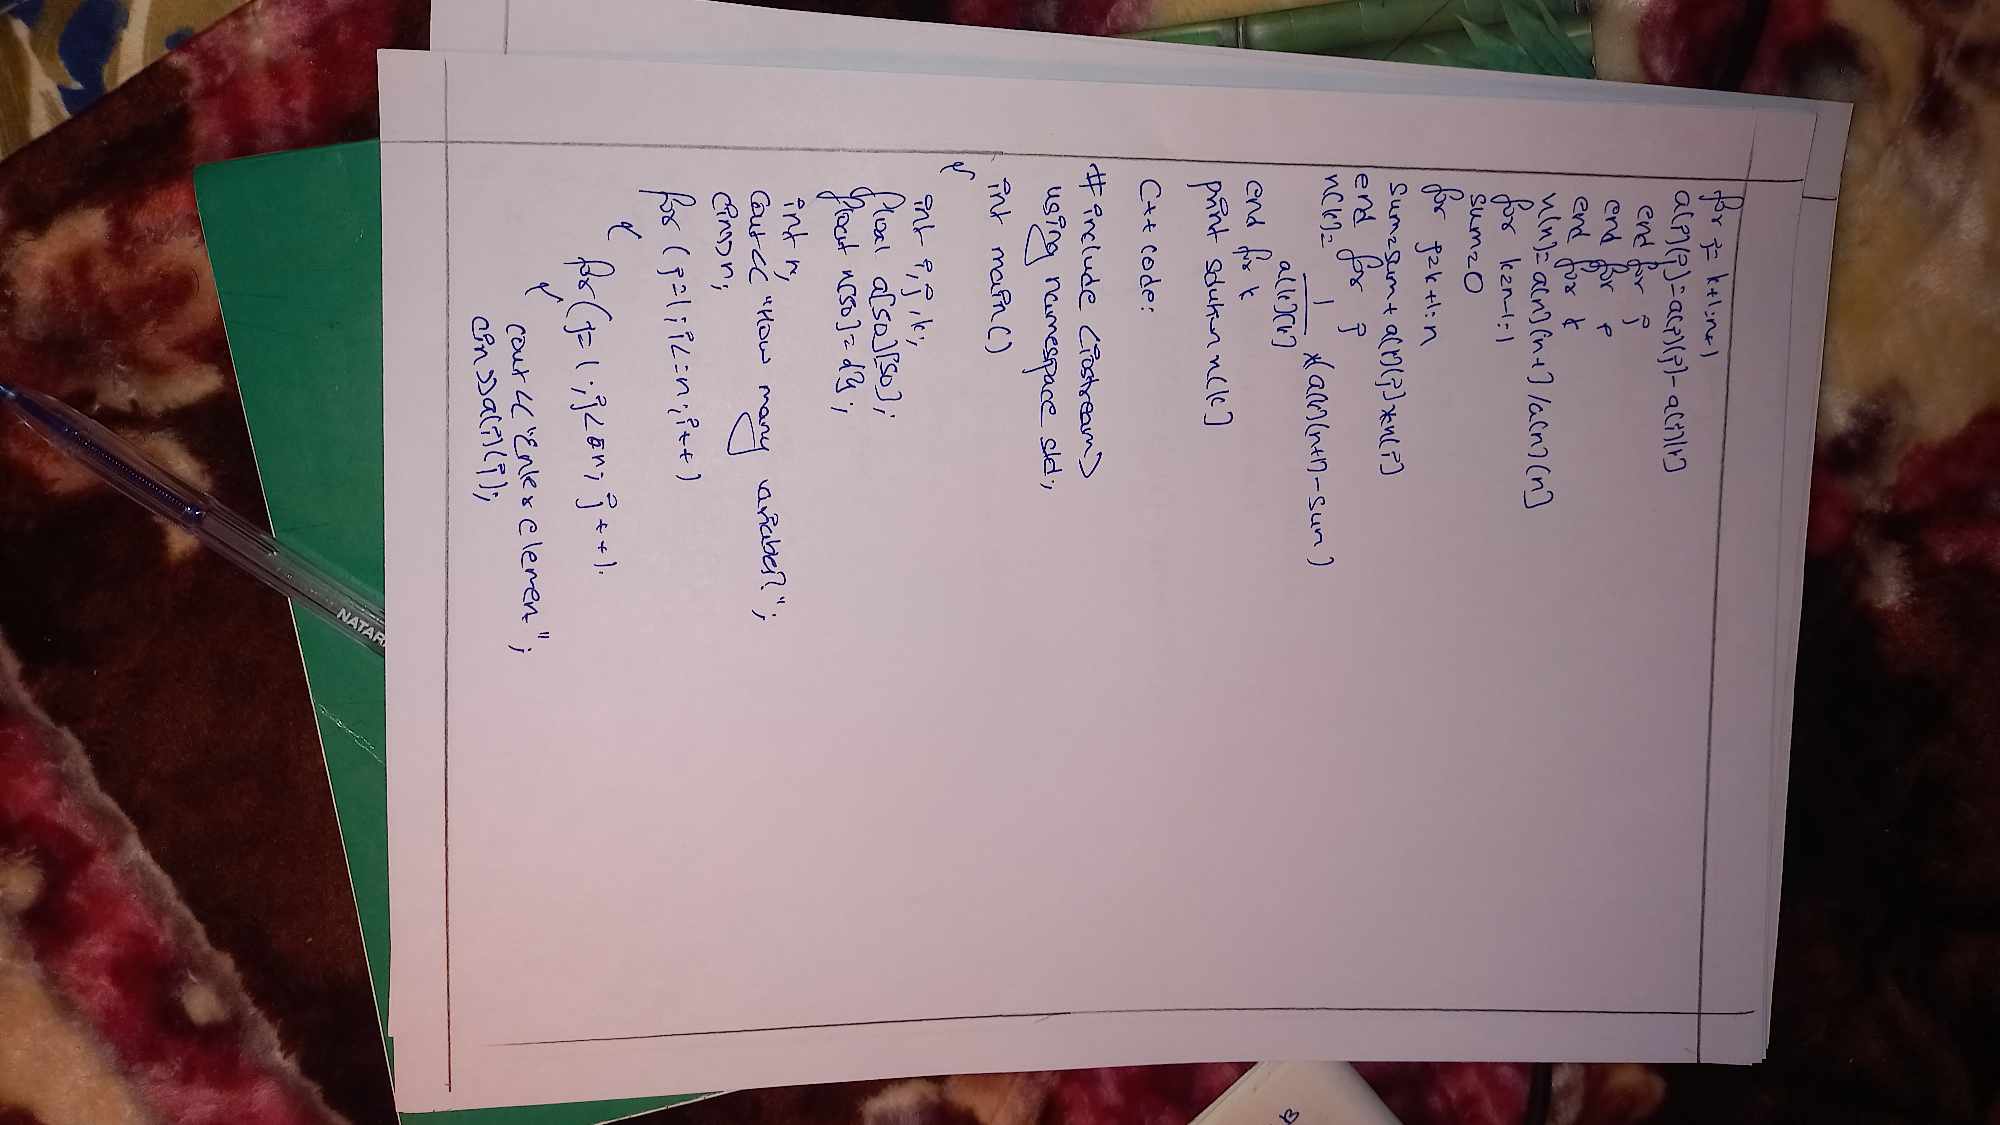 for j= k+1:n+1
a[i][j]=a[i][j]- a[i][k]
end for j
end for i
end for k
x[n]= a[n][n+1] /a[n][n]
for k=n-1:1
sum=0
for j=k+1:n
sum=sum+ a[k][j]*x[j]
end for j
x[k]= 1/a[k][k] *(a[k][n+1]-sum)
end for k
print solution x[k]
C++ code:
#include <iostream>
using namespace std;
int main()
{
int i,j,k;
float a[50][50];
float x[50]={};
int n;
cout<< "How many variabes?";
cin>>n;
for (j=1;i<=n;i++)
{
for(j=1;j<=n; j++)
{
cout<<"Enter element";
cin>>a[i][j];
NATAR